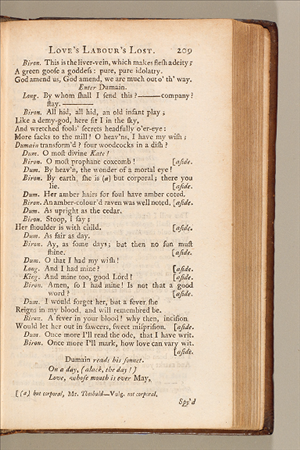 LOVE'S LABOUR'S LOST. 209
Biron. This is the liver-vein, which makes flesh a deity:
A green goose a goddess: pure, pure idolatry.
God amend us, God amend, we are much out o' th' way.
Enter Dumain.
Long. By whom shall I send this?——company?
stay.——
Biron. All hid, all hid, an old infant play;
Like a demy-god, here sit I in the sky,
And wretched fools' secrets headfully o'er-eye:
More sacks to the mill! O heav'ns, I have my wish;
Dumain transform'd? four woodcocks in a dish?
Dum. O most divine Kate!
Biron. O most prophane coxcomb! [aside.
Dum. By heav'n, the wonder of a mortal eye!
Biron. By earth, she is (a) but corporal; there you
lie. [aside.
Dum. Her amber hairs for foul have amber coted.
Biron. An amber-colour'd raven was well noted. [aside.
Dum. As upright as the cedar.
Biron. Stoop, I say;
Her shoulder is with child. [aside.
Dum. As fair as day.
Biron. Ay, as some days; but then no sun must
shine. [aside.
Dum. O that I had my wish!
Long. And I had mine! [aside.
King. And mine too, good Lord! [aside.
Biron. Amen, so I had mine! Is not that a good
word? [aside.
Dum. I would forget her, but a fever she
Reigns in my blood, and will remembred be.
Biron. A fever in your blood? why then, incision
Would let her out in sawcers, sweet misprision. [aside.
Dum. Once more I'll read the ode, that I have writ.
Biron. Once more I'll mark, how love can vary wit.
[aside.
Dumain reads his sonnet.
On a day, (alack, the day!)
Love, whose month is ever May,
[(a) but corporal, Mr. Theobald—Vulg. not corporal,
Spy'd